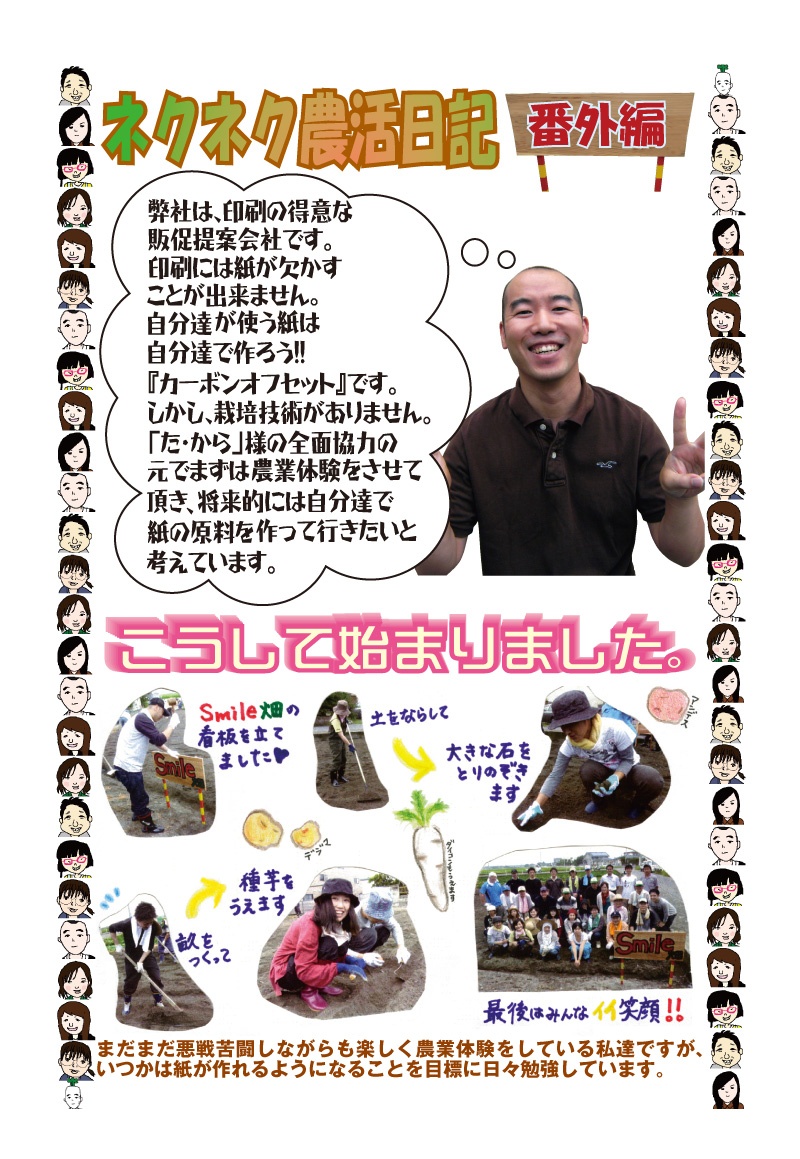 ネクネク農活日記
番外編
弊社は、印刷の得意な
販促提案会社です。
印刷には紙が欠かす
ことが出来ません。
自分達が使う紙は
自分達で作ろう!!
『カーボンオフセット』です。
しかし、栽培技術がありません。
「た・から」様の全面協力の
元でまずは農業体験をさせて
頂き、将来的には自分達で
紙の原料を作って行きたいと
考えています。
こうして始まりました。
Smile畑の
看板を立て
ました♥
Smile
土をならして
大きな石を
とりのぞき
ます
アンデス
デジマ
ダイコンもうえます
畝を
つくって
種芋を
うえます
Smile畑
最後はみんなイイ笑顔!!
まだまだ悪戦苦闘しながらも楽しく農業体験をしている私達ですが、
いつかは紙が作れるようになることを目標に日々勉強しています。